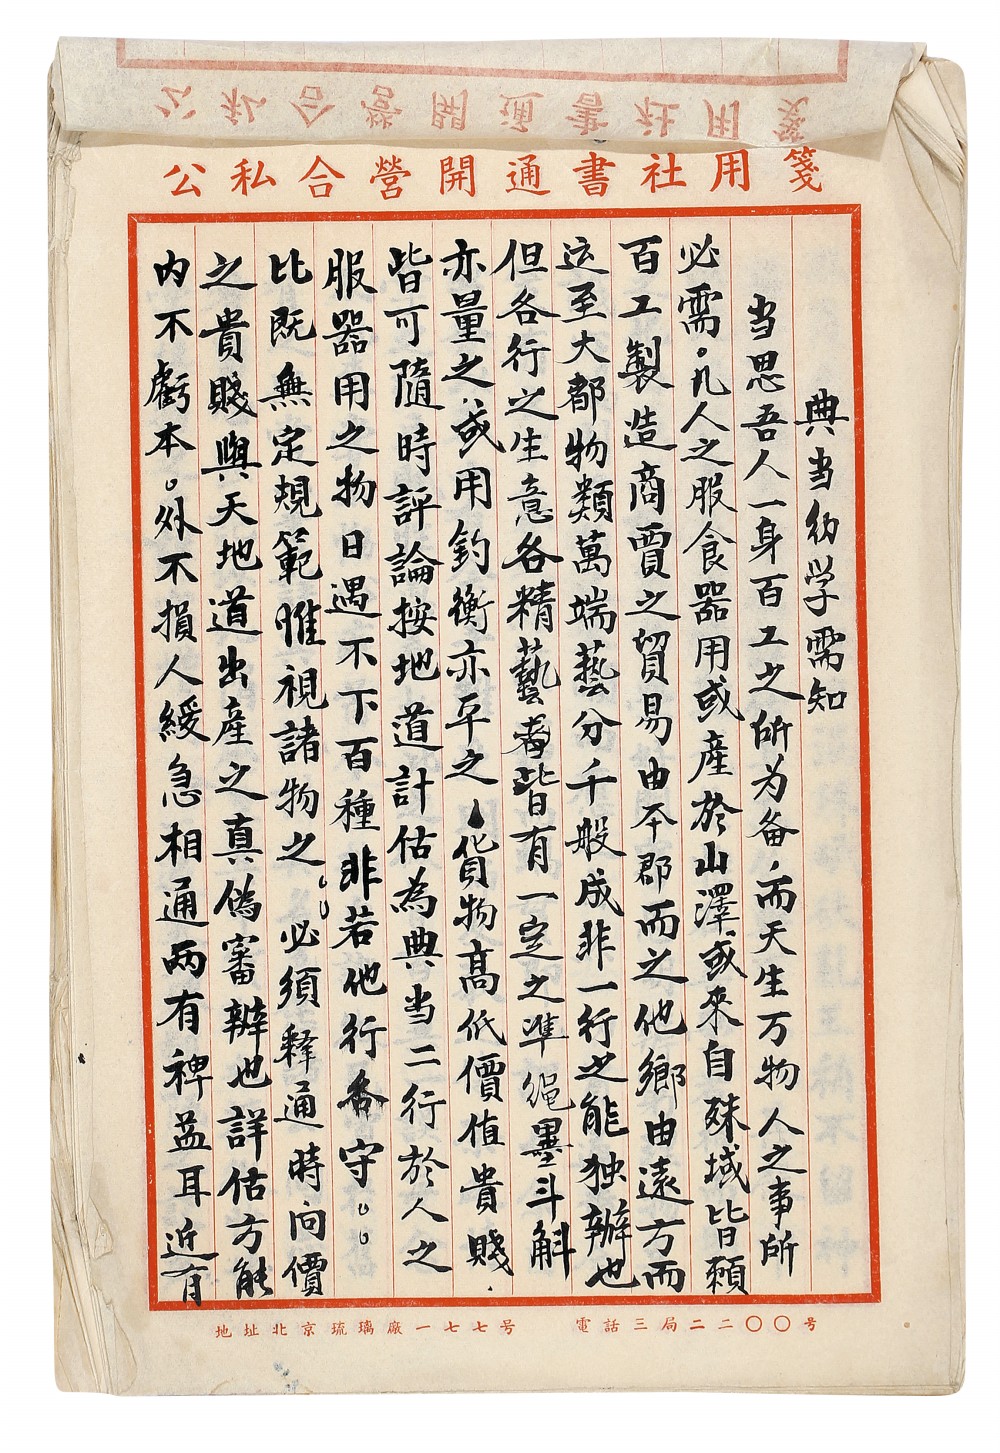 公私合營開通書社用箋
典当幼学需知
当思吾人一身百工之所为备而天生万物人之事所
必需凡人之服食器用或產於山澤或來自殊域皆賴
百工製造商賈之貿易由本郡而之他鄉由遠方而
运至大都物類萬端藝分千般成非一行之能独辦也
但各行之生意各精藝者皆有一定之準绳墨斗斛
亦量之或用鈞衡亦平之貨物高低價值貴賤
皆可隨時評論按地道計估為典当二行於人之
服器用之物日遇不下百種非若他行各守
比既無定規範惟視諸物之必須释通時向價
之貴賤與天地道出産之真偽審辦也詳估方能
内不虧本外不損人緩急相通两有裨益耳近有
地址北京琉璃廠一七七号 電話三局二二〇〇号